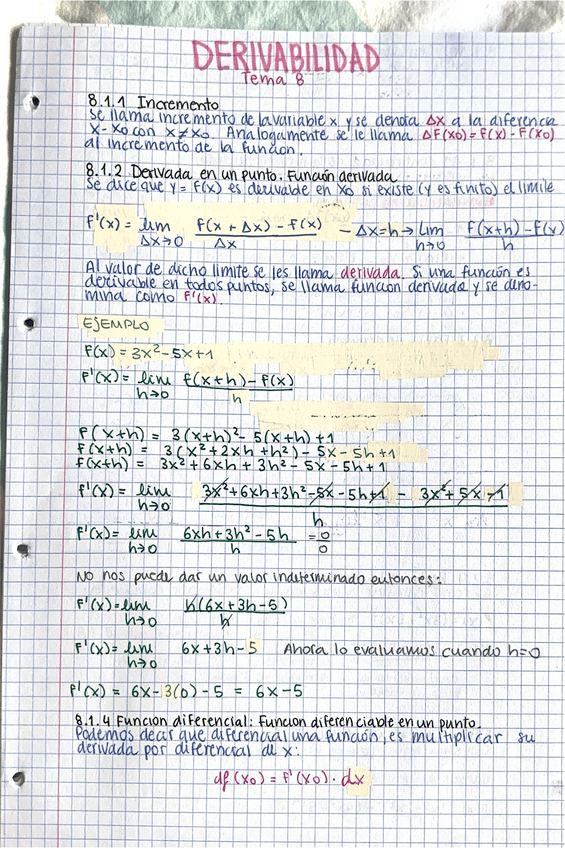 DERIVABILIDAD
Tema 8
8.1.1 Incremento
Se llama incremento de la variable x y se denota Δx a la diferencia
x - x₀ con x ≠ x₀. Analogamente se le llama ΔF(x₀) = F(x) - F(x₀)
al incremento de la funcion.
8.1.2 Derivada en un punto. Función derivada
Se dice que y = F(x) es derivable en x₀ si existe (y es finito) el limite
F'(x) = lim Δx→0 F(x + Δx) - F(x) / Δx - Δx = h → lim h→0 F(x+h) - F(x) / h
Al valor de dicho limite se les llama derivada. Si una función es
derivable en todos puntos, se llama funcion derivada y se deno-
mina como F'(x).
EJEMPLO
F(x) = 3x² - 5x + 1
F'(x) = lim h→0 F(x+h) - F(x) / h
F(x+h) = 3(x+h)² - 5(x+h) + 1
F(x+h) = 3(x² + 2xh + h²) - 5x - 5h + 1
F(x+h) = 3x² + 6xh + 3h² - 5x - 5h + 1
F'(x) = lim h→0 3x² + 6xh + 3h² - 5x - 5h + 1 - 3x² + 5x - 1 / h
F'(x) = lim h→0 6xh + 3h² - 5h / h = 0/0
No nos puede dar un valor indeterminado entonces:
F'(x) = lim h→0 h(6x + 3h - 5) / h
F'(x) = lim h→0 6x + 3h - 5 Ahora lo evaluamos cuando h=0
F'(x) = 6x - 3(0) - 5 = 6x - 5
8.1.4 Funcion diferencial: Funcion diferenciable en un punto.
Podemos decir que diferencial una función, es multiplicar su
derivada por diferencial de x:
df(x₀) = F'(x₀) · dx